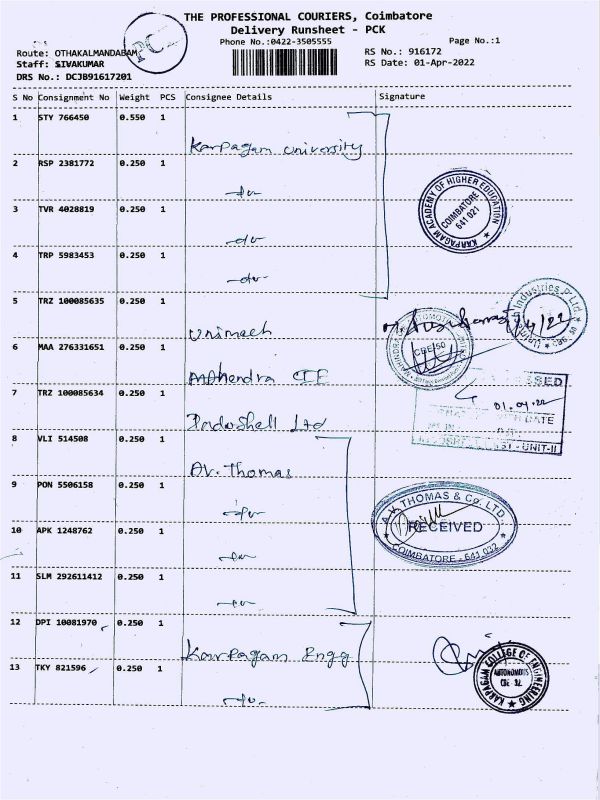 THE PROFESSIONAL COURIERS, Coimbatore
Delivery Runsheet - PCK
Phone No.:0422-3505555
Page No.:1
PC
Route: OTHAKALMANDABAM
RS No.: 916172
Staff: SIVAKUMAR
RS Date: 01-Apr-2022
DRS No.: DCJB91617201
S No Consignment No Weight PCS Consignee Details Signature
1 STY 766450 0.550 1
Karpagam University
2 RSP 2381772 0.250 1
-do-
3 TVR 4028819 0.250 1
-do-
4 TRP 5983453 0.250 1
-do-
KARPAGAM ACADEMY OF HIGHER EDUCATION
COIMBATORE
641 021
5 TRZ 100085635 0.250 1
Unimech
Industries P Ltd
6 MAA 276331651 0.250 1
Mahendra CIE
CBE 50
7 TRZ 100085634 0.250 1
Ltd
01.04.22
DATE
UNIT-II
8 VLI 514508 0.250 1
AV. Thomas
9 PON 5506158 0.250 1
-do-
10 APK 1248762 0.250 1
-do-
A.V. THOMAS & CO. LTD.
RECEIVED
COIMBATORE - 641 032
11 SLM 292611412 0.250 1
-do-
12 DPI 10081970 0.250 1
Karpagam Engg
13 TKY 821596 0.250 1
-do-
KARPAGAM COLLEGE OF ENGINEERING
AUTONOMOUS
CBE 32.